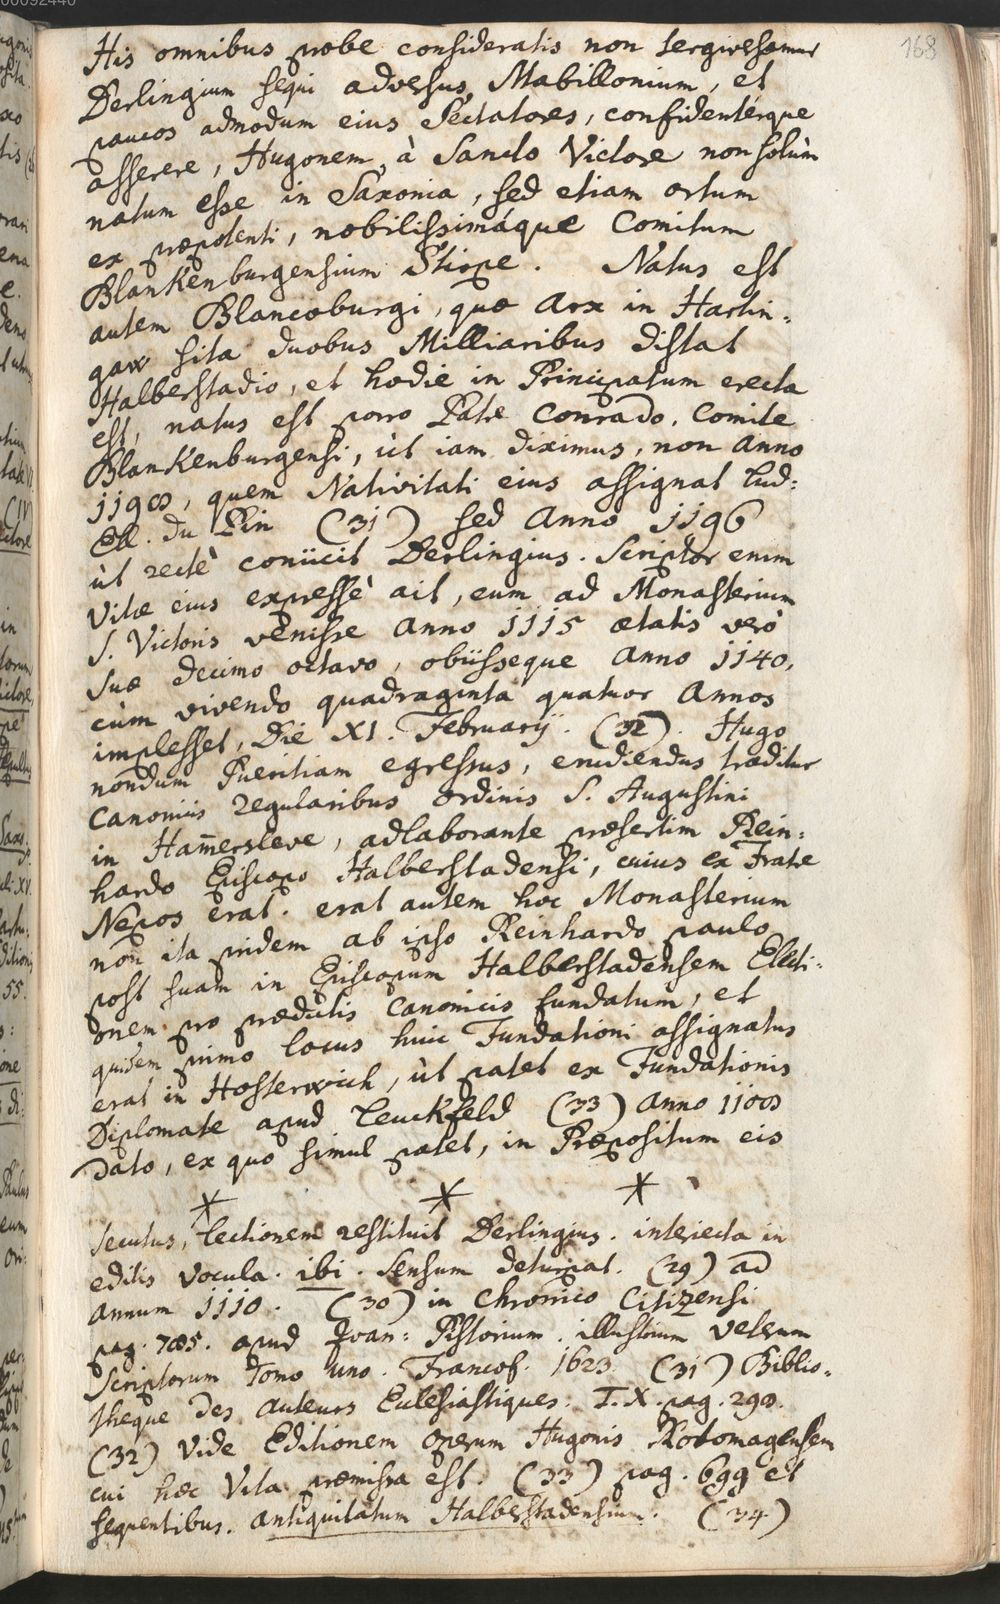 168
His omnibus probe consideratis non tergiversamur
Derlingium sequi adversus Mabillonium, et
paucos admodum eius Sectatores, confidentérque
asserere, Hugonem à Sancto Victore non solùm
natum esse in Saxonia, sed etiam ortum
ex præpotenti, nobilissimáque Comitum
Blankenburgensium Stirpe. Natus est
autem Blancoburgi, quæ Arx in Hartin=
gaw sita duobus Milliaribus distat
Halberstadio, et hodie in Principatum erecta
est, natus est porro Patre Conrado, Comite
Blankenburgensi, ùt iam diximus, non Anno
1198, quem Nativitati eius assignat Lud:
Ell. Du Pin (31) sed Anno 1196
ùt rectè coniicit Derlingius. Scriptor enim
Vitæ eius expressè ait, eum ad Monasterium
S. Victoris venisse Anno 1115 ætatis verò
suæ decimo octavo, obiisseque Anno 1140,
cùm vivendo quadraginta quatuor Annos
implesset, Die XI. Februarij. (32). Hugo
nondum Pueritiam egressus, erudiendus traditur
Canonicis regularibus Ordinis S. Augustini
in Ham̄ersleve, adlaborante præsertim Rein=
hardo Episcopo Halberstadensi, cuius ex Fratre
Nepos erat. erat autem hoc Monasterium
non ita pridem ab ipso Reinhardo paulo
post suam in Episcopum Halberstadensem Electi=
onem pro prædictis Canonicis fundatum, et
quidem primo locus huic Fundationi assignatus
erat in Hosterwich, ùt patet ex Fundationis
Diplomate apud Leuckfeld (33) Anno 1108
dato, ex quo simul patet, in Præpositum eis
* * *
secutus, Lectionem restituit Derlingius. interiecta in
editis vocula. ibi. Sensum deturpat. (29) ad
annum 1110. (30) in Chronico Citizensi
pag. 785. apud Joan: Pistorium. illustrium Veterum
Scriptorum Tomo uno. Francof. 1623. (31) Biblio=
theque des Auteurs Eulesiastiques. T. X. pag. 298.
(32) Vide Editionem operum Hugonis Rotomagensem
cui hæc Vita præmissa est. (33) pag. 699 et
sequentibus. Antiquitatum Halberstadensium. (34)